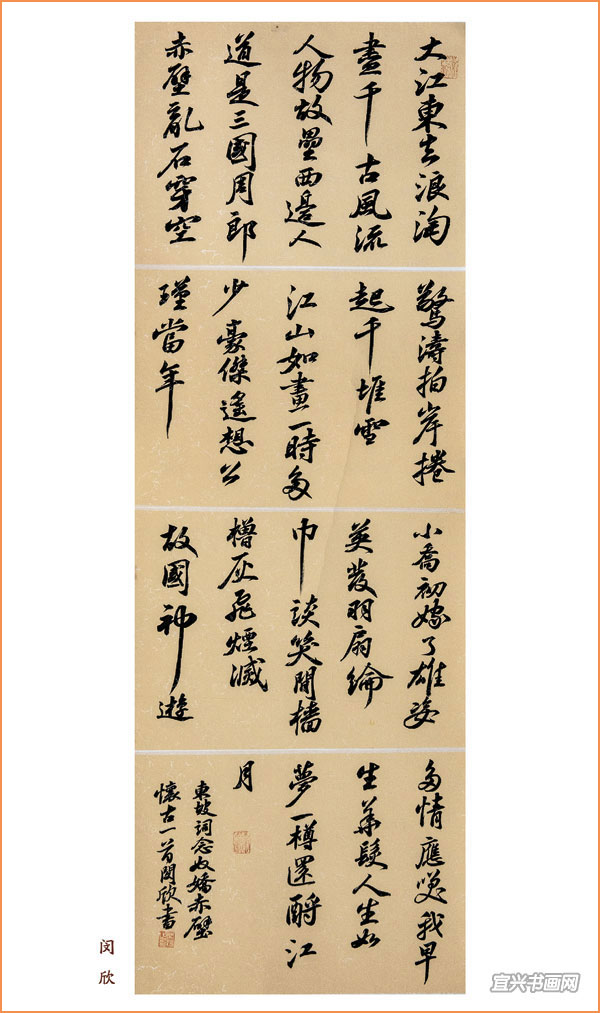 大江東去浪淘
盡千古風流
人物故壘西邊人
道是三國周郎
赤壁亂石穿空
驚濤拍岸捲
起千堆雪
江山如畫一時多
少豪傑遙想公
瑾當年
小喬初嫁了雄姿
英發羽扇綸
巾談笑間檣
櫓灰飛煙滅
故國神遊
多情應笑我早
生華髮人生如
夢一樽還酹江
月
東坡詞念奴嬌赤壁
懷古一首閔欣書
闵欣
宜兴书画网